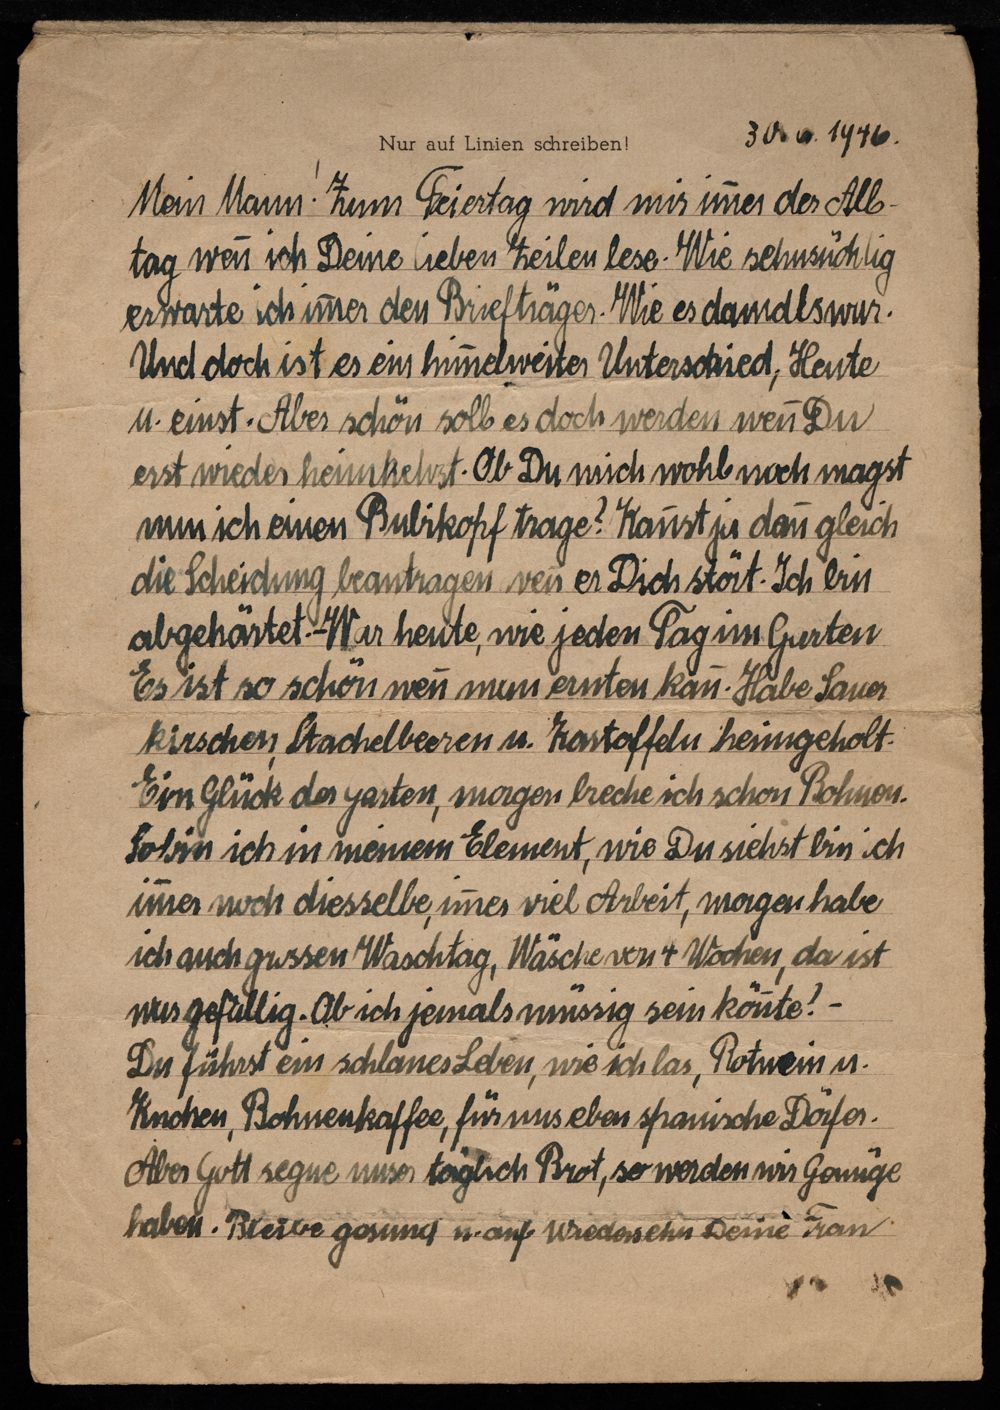 Nur auf Linien schreiben!
30. 6. 1946.
Mein Mann! Zum Feiertag wird mir im̄er der All-
tag wen̄ ich Deine lieben Zeilen lese. Wie sehnsüchtig
erwarte ich im̄er den Briefträger. Wie es damals war.
Und doch ist es ein him̄elweiter Unterschied, Heute
u. einst. Aber schön soll es doch werden wen̄ Du
erst wieder heimkehrst. Ob Du mich wohl noch magst
nun ich einen Bubikopf trage? Kan̄st ja dan̄ gleich
die Scheidung beantragen wen̄ er Dich stört. Ich bin
abgehärtet. - War heute, wie jeden Tag im Garten
Es ist so schön wen̄ man ernten kan̄. Habe Sauer
kirschen, Stachelbeeren u. Kartoffeln heimgeholt.
Ein Glück der garten, morgen breche ich schon Bohnen.
So bin ich in meinem Element, wie Du siehst bin ich
im̄er noch diesselbe, im̄er viel Arbeit, morgen habe
ich auch grossen Waschtag, Wäsche von 4 Wochen, da ist
was gefällig. Ob ich jemals müssig sein kön̄te! -
Du führst ein schlaues Leben, wie ich las, Rotwein u.
Kuchen, Bohnenkaffee, für uns eben spanische Dörfer.
Aber Gott segne unser täglich Brot, so werden wir Genüge
haben. Bleibe gesund u. auf Wiedersehn Deine Frau